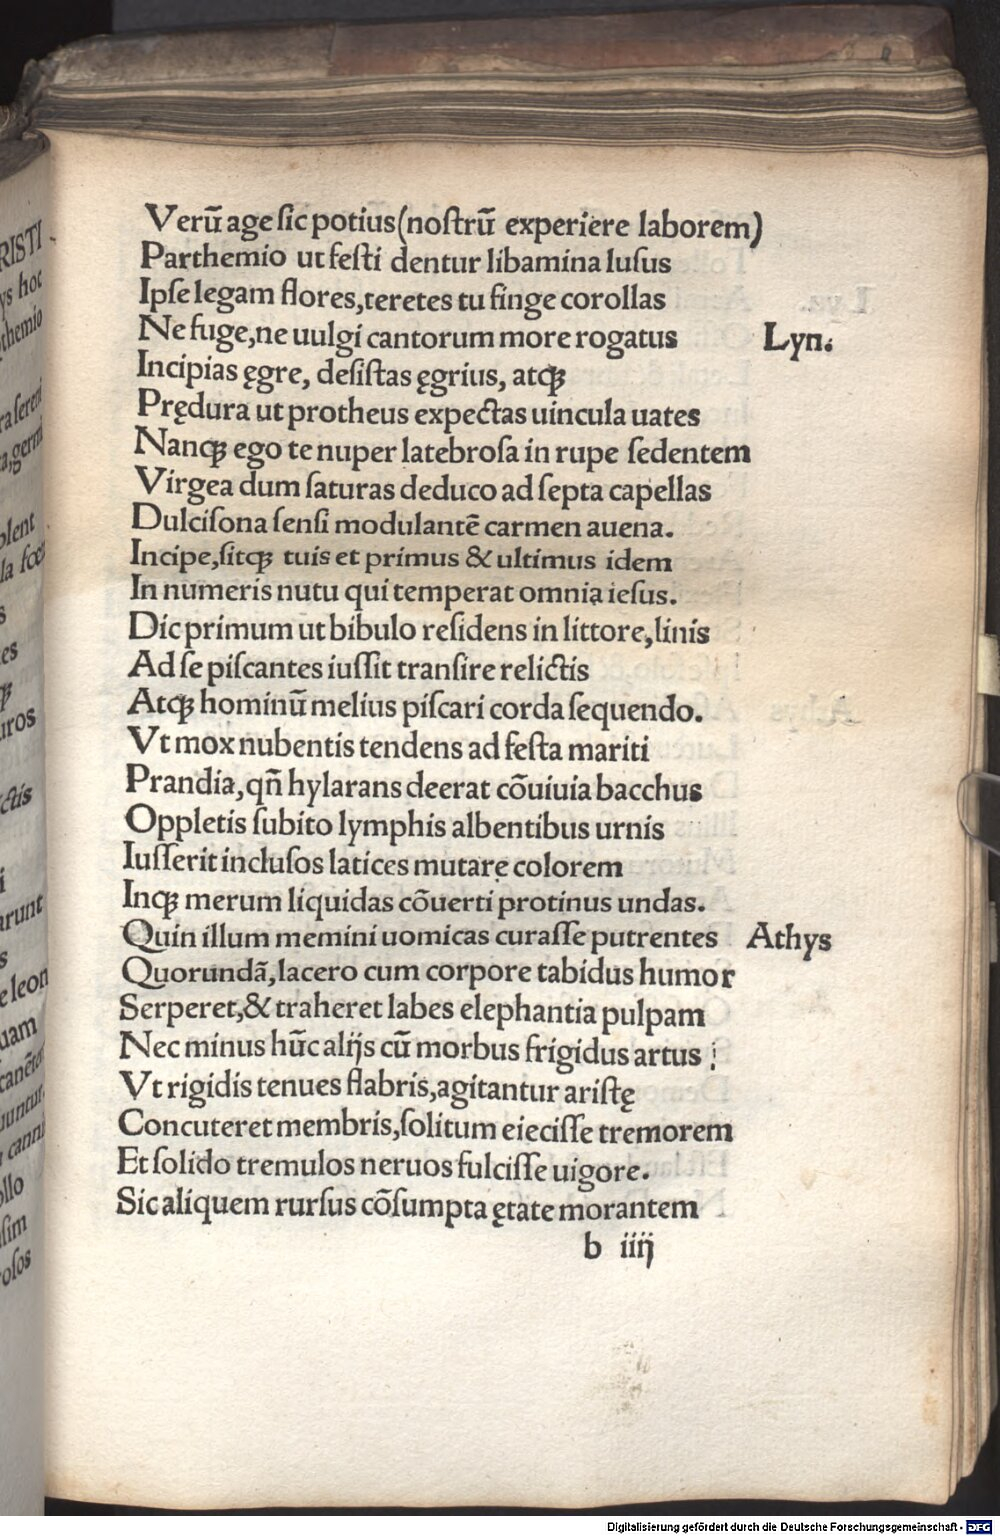 Verū age sic potius(nostrū experiere laborem)
Parthemio ut festi dentur libamina lusus
Ipse legam flores,teretes tu finge corollas
Ne fuge,ne uulgi cantorum more rogatus Lyn.
Incipias ęgre, desistas ęgrius, atqꝫ
Prędura ut protheus expectas uincula uates
Nanqꝫ ego te nuper latebrosa in rupe sedentem
Virgea dum saturas deduco ad septa capellas
Dulcisona sensi modulantē carmen auena.
Incipe,sitqꝫ tuis et primus & ultimus idem
In numeris nutu qui temperat omnia iesus.
Dic primum ut bibulo residens in littore,linis
Ad se piscantes iussit transire relictis
Atqꝫ hominū melius piscari corda sequendo.
Vt mox nubentis tendens ad festa mariti
Prandia,qn̄ hylarans deerat cōuiuia bacchus
Oppletis subito lymphis albentibus urnis
Iusserit inclusos latices mutare colorem
Inqꝫ merum liquidas cōuerti protinus undas.
Quin illum memini uomicas curasse putrentes Athys
Quorundā,lacero cum corpore tabidus humor
Serperet,& traheret labes elephantia pulpam
Nec minus hūc alijs cū morbus frigidus artus
Vt rigidis tenues flabris,agitantur aristę
Concuteret membris,solitum eiecisse tremorem
Et solido tremulos neruos fulcisse uigore.
Sic aliquem rursus cōsumpta ętate morantem
b iiij
RISTI
ys hoc
themio
olent
s
es
uros
ctis
i
arunt
s
e leon
uam
ollo
sim
osos
Digitalisierung gefördert durch die Deutsche Forschungsgemeinschaft - DFG